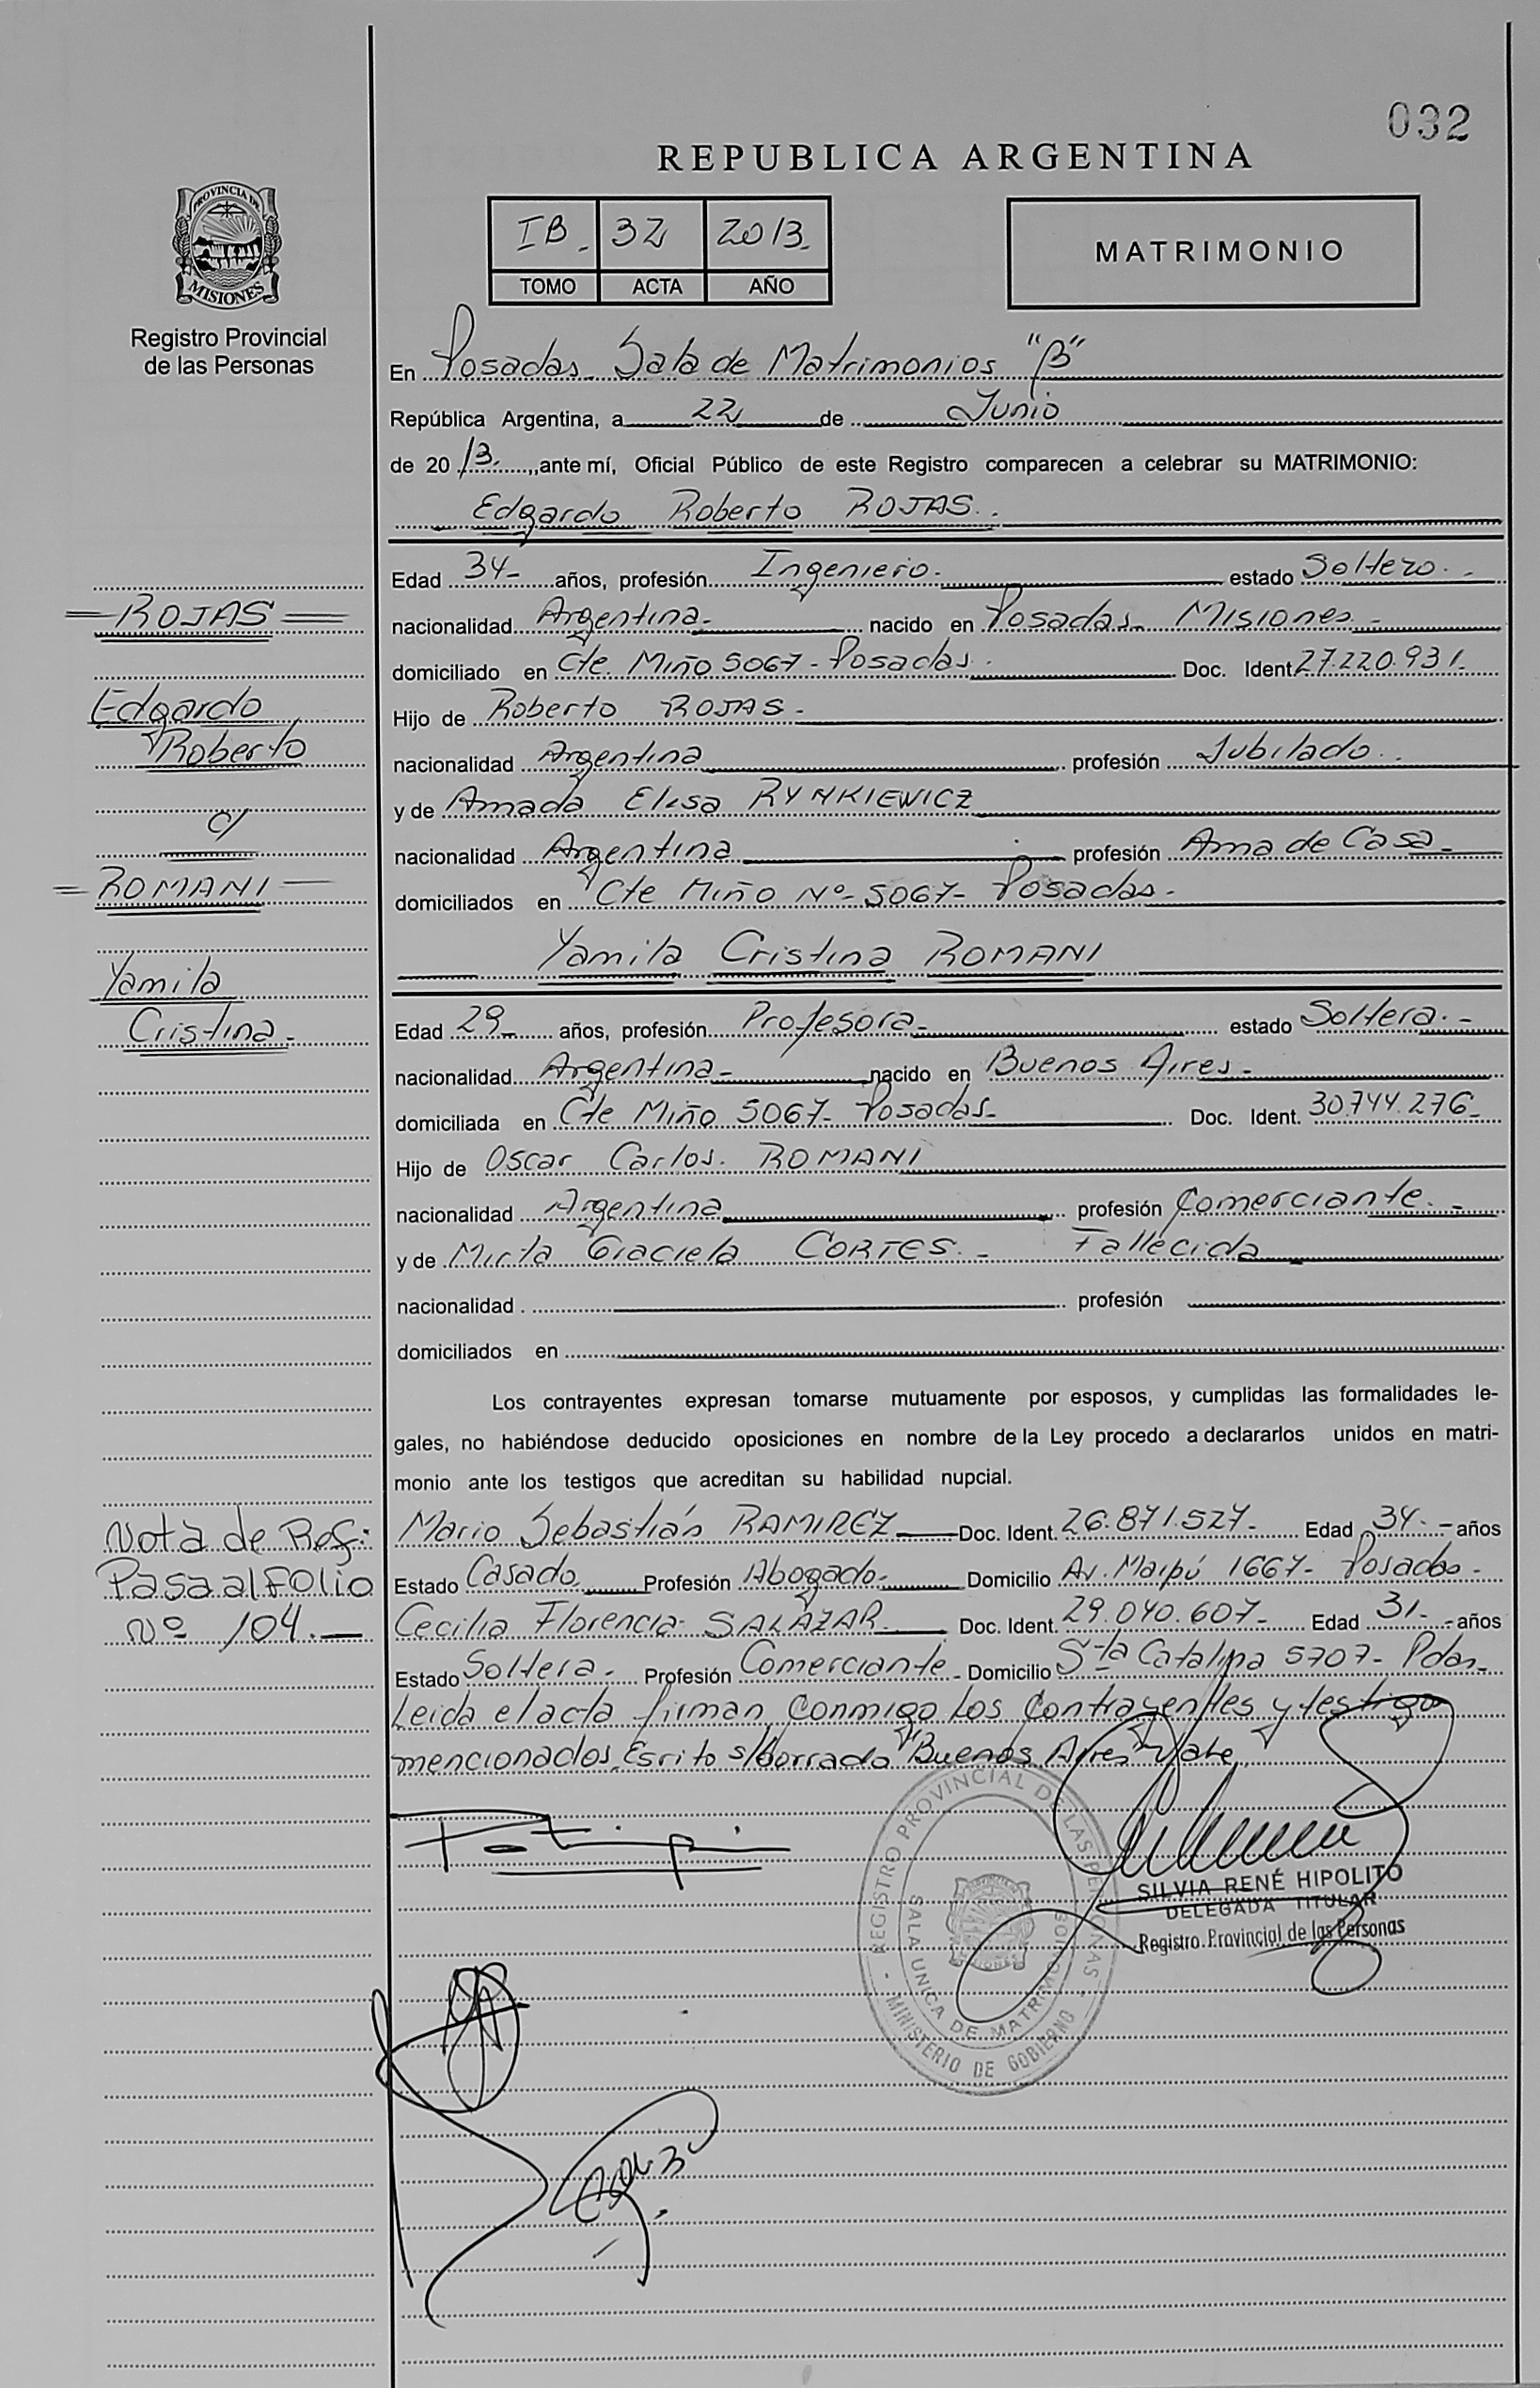 032
REPUBLICA ARGENTINA
PROVINCIA DE
MISIONES
Registro Provincial
de las Personas
IB. 32 2013.
TOMO ACTA AÑO
MATRIMONIO
En Posadas Sala de Matrimonios "B"
República Argentina, a 22 de Junio
de 2013., ante mí, Oficial Público de este Registro comparecen a celebrar su MATRIMONIO:
Edgardo Roberto ROJAS.
Edad 34- años, profesión Ingeniero. estado Soltero.-
nacionalidad Argentina- nacido en Posadas- Misiones-
domiciliado en Cte. Miño 5067- Posadas. Doc. Ident 27.220.931.
Hijo de Roberto ROJAS-
nacionalidad Argentina profesión Jubilado.
y de Amada Elisa RYNKIEWICZ
nacionalidad Argentina profesión Ama de Casa-
domiciliados en Cte Miño Nº-5067- Posadas-
Yamila Cristina ROMANI
Edad 29- años, profesión Profesora- estado Soltera.-
nacionalidad Argentina- nacido en Buenos Aires-
domiciliada en Cte Miño 5067- Posadas- Doc. Ident. 30.744.276-
Hijo de Oscar Carlos. ROMANI
nacionalidad Argentina profesión Comerciante.-
y de Mirta Graciela CORTES.- Fallecida
nacionalidad profesión
domiciliados en
Los contrayentes expresan tomarse mutuamente por esposos, y cumplidas las formalidades le-
gales, no habiéndose deducido oposiciones en nombre de la Ley procedo a declararlos unidos en matri-
monio ante los testigos que acreditan su habilidad nupcial.
Mario Sebastián RAMIREZ Doc. Ident. 26.871.527- Edad 34.- años
Estado Casado Profesión Abogado- Domicilio Av. Maipú 1667- Posadas-
Cecilia Florencia SALAZAR Doc. Ident. 29.040.607- Edad 31.- años
Estado Soltera- Profesión Comerciante- Domicilio Sta Catalina 5707- Pdas-
Leida el acta firman conmigo los contrayentes y testigo
mencionados, Escrito s/borrado "Buenos Aires" Vale
=ROJAS=
Edgardo
Roberto
c/
=ROMANI=
Yamila
Cristina-
Nota de Ref:
Pasa al Folio
Nº 104.-
REGISTRO PROVINCIAL DE LAS PERSONAS
SALA UNICA DE MATRIMONIOS
MINISTERIO DE GOBIERNO
SILVIA RENÉ HIPOLITO
DELEGADA TITULAR
Registro Provincial de las Personas